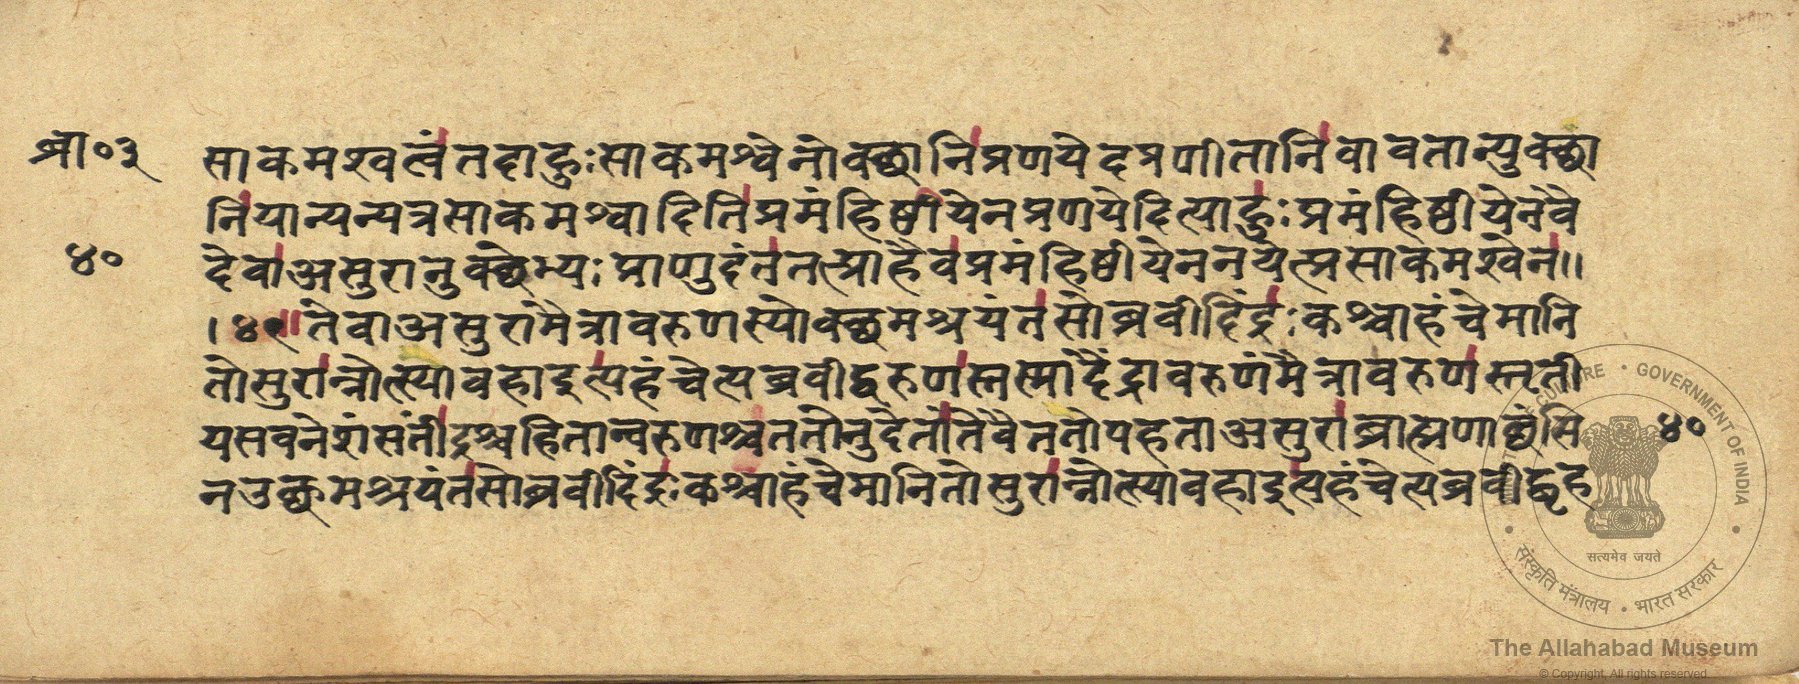 ब्रा०३
साकमश्वत्वं तदाहुः साकमश्वेनोक्थानि प्रणयेदप्रणीतानि वाव तान्युक्था
नि यान्यन्यत्र साकमश्वादिति प्रमंहिष्ठीयेन प्रणयेदित्याहुः प्रमंहिष्ठीयेन वै
४०
देवा असुरानुक्थेभ्यः प्राणुदंत तत्प्राहैव प्रमंहिष्ठीयेन नयेत्प्र साकमश्वेन॥
।४९॥ ते वा असुरा मैत्रावरुणस्योक्थमश्रयंत सोब्रवीदिंद्रः कश्चाहं चेमानि
तोसुरान्नोत्स्यावहा इत्यहं चेत्यब्रवीद्वरुणस्तस्मादैंद्रावरुणं मैत्रावरुणस्तृती
यसवने शंसतींद्रश्च हि तान्वरुणश्च ततोनुदेतां ते वै ततोपहता असुरा ब्राह्मणाछंसि
४०
न उक्थमश्रयंत सोब्रवीदिंद्रः कश्चाहं चेमानितोसुरान्नोत्स्यावहा इत्यहं चेत्यब्रवीद्बृह
GOVERNMENT OF INDIA
सत्यमेव जयते
संस्कृति मंत्रालय • भारत सरकार
The Allahabad Museum
© Copyright. All rights reserved.